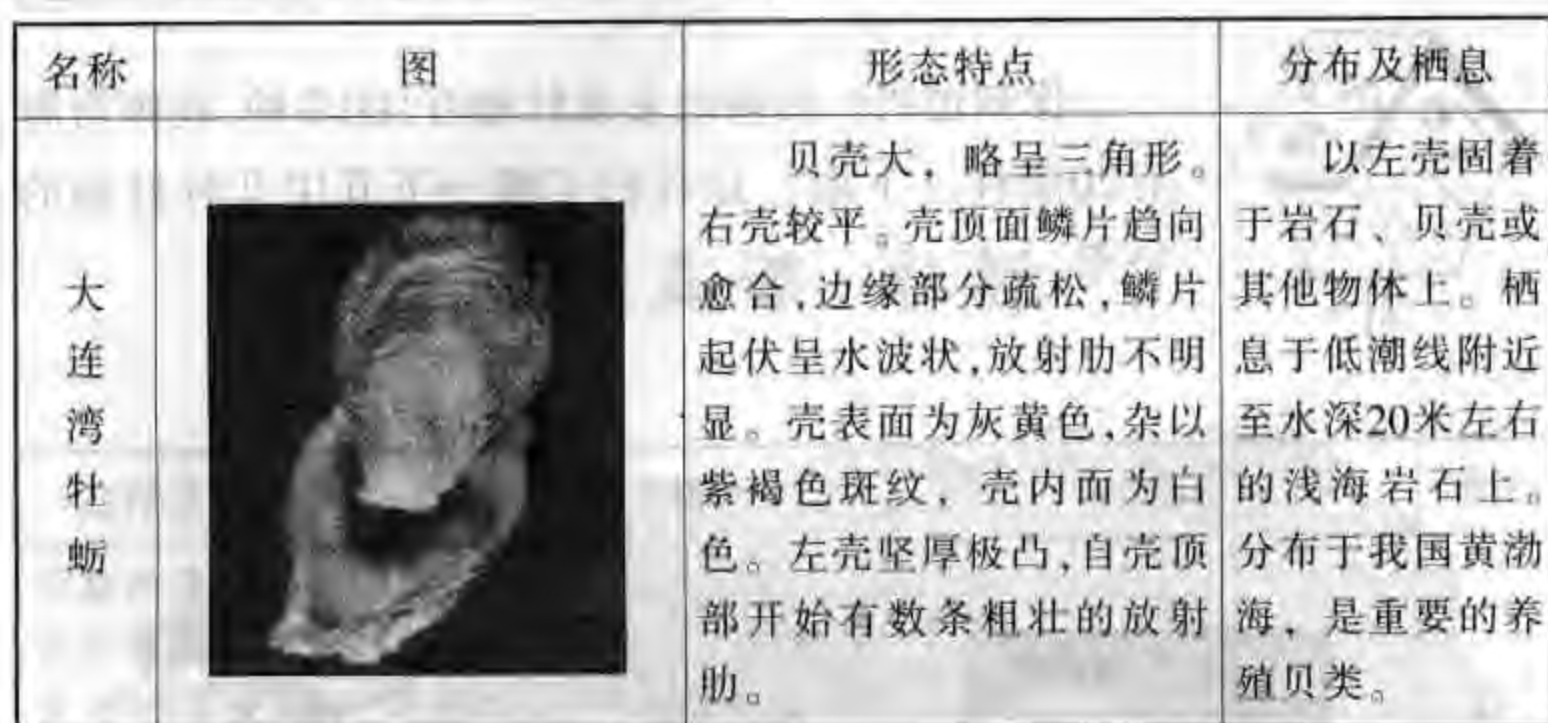 名称
图
形态特点
分布及栖息
大
连
湾
牡
蛎
贝壳大，略呈三角形。
右壳较平。壳顶面鳞片趋向
愈合,边缘部分疏松,鳞片
起伏呈水波状,放射肋不明
显。壳表面为灰黄色,杂以
紫褐色斑纹，壳内面为白
色。左壳坚厚极凸,自壳顶
部开始有数条粗壮的放射
肋。
以左壳固着
于岩石、贝壳或
其他物体上。栖
息于低潮线附近
至水深20米左右
的浅海岩石上。
分布于我国黄渤
海，是重要的养
殖贝类。